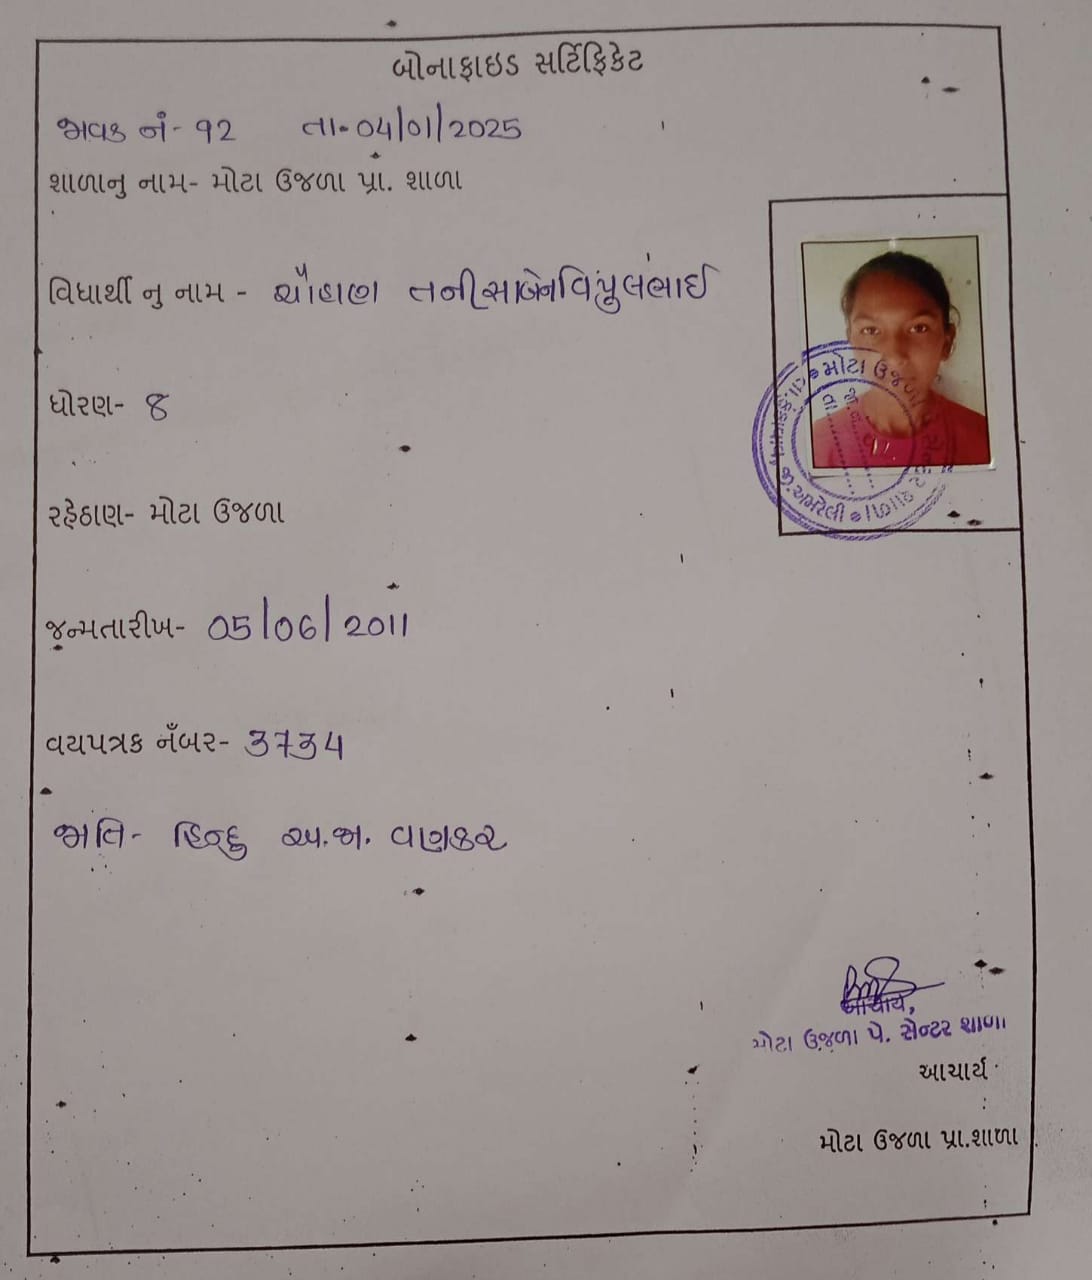 બોનાફાઇડ સર્ટિફિકેટ
જાવક નં- ૧2 તા- 04/01/2025
શાળાનુ નામ- મોટા ઉજળા પ્રા. શાળા
વિધાર્થી નુ નામ - ચૌહાણ તનીસાબેન વિપુલભાઈ
ધોરણ- 8
રહેઠાણ- મોટા ઉજળા
જન્મતારીખ- 05/06/2011
વયપત્રક નઁબર- 3734
જાતિ- હિન્દુ અ.જા. વણકર
મોટા ઉજળા પે સેન્ટર શાળા
જી.અમરેલી
જા.નં. ૧2
તા.
આચાર્ય,
મોટા ઉજળા પે. સેન્ટર શાળા
આચાર્ય
મોટા ઉજળા પ્રા.શાળા